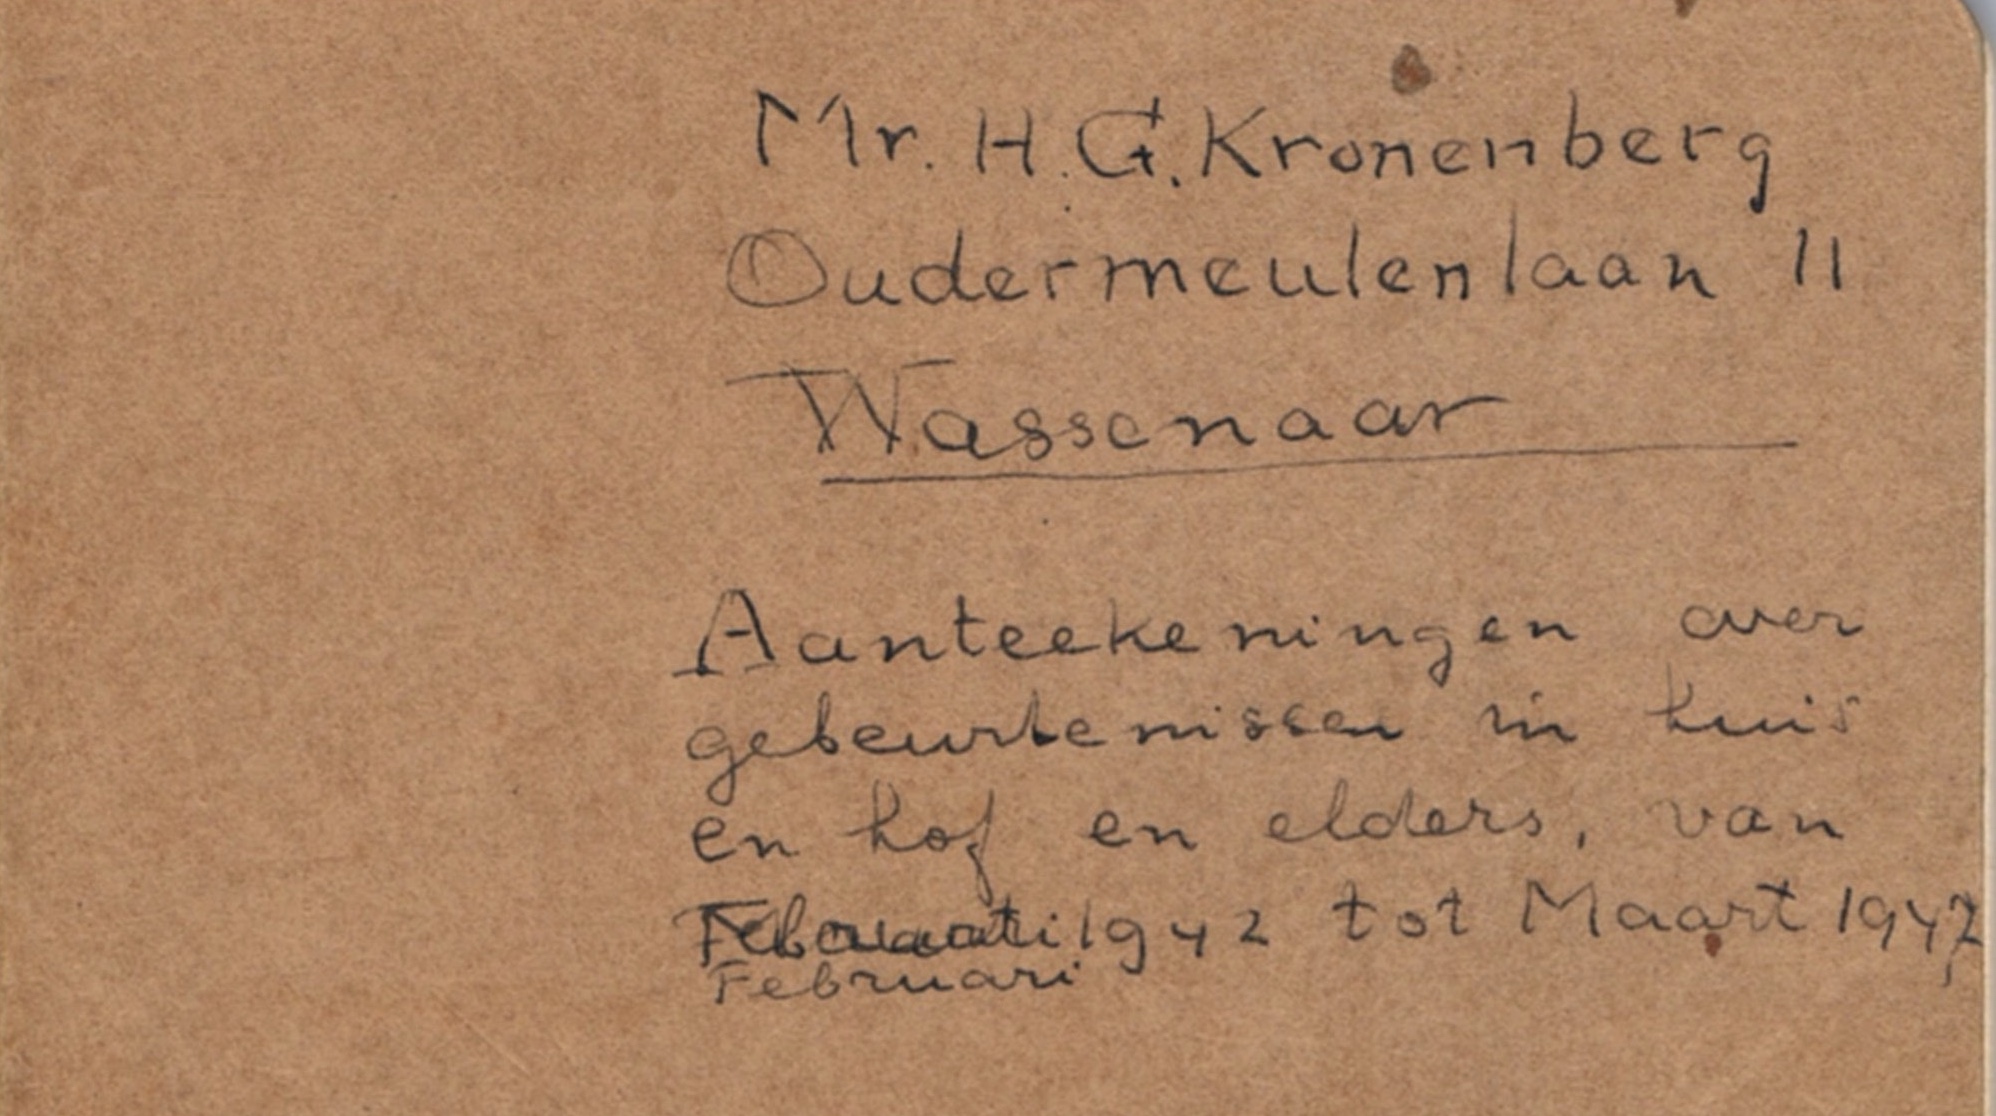 Mr. H. G. Kronenberg
Oudermeulenlaan 11
Wassenaar
Aanteekeningen over
gebeurtenissen in huis
en hof en elders, van
Februari 1942 tot Maart 1947
Februari